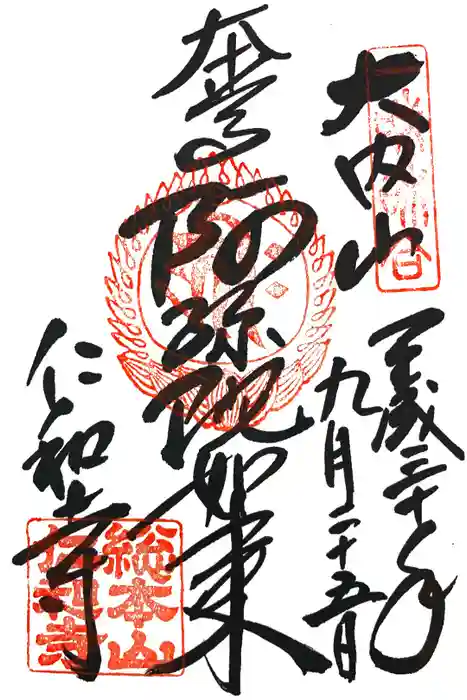 大内山
平成三十年
九月二十五日
本尊
阿弥陀如来
仁和寺
総本山
仁和寺